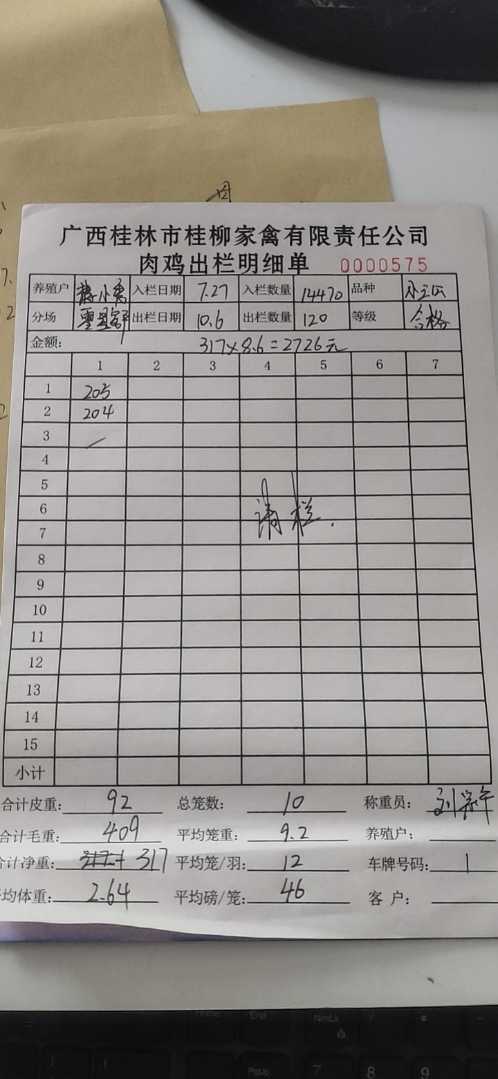 广西桂林市桂柳家禽有限责任公司
肉鸡出栏明细单 0000575
养殖户 入栏日期 7.27 入栏数量 14470 品种
分场 出栏日期 10.6 出栏数量 120 等级 合格
金额: 317×8.6=2726元
1 2 3 4 5 6 7
1 205
2 204
3
4
5
6
清栏.
7
8
9
10
11
12
13
14
15
小计
合计皮重: 92 总笼数: 10 称重员:
合计毛重: 409 平均笼重: 9.2 养殖户:
合计净重: 317 平均笼/羽: 12 车牌号码:
平均体重: 2.64 平均磅/笼: 46 客 户: